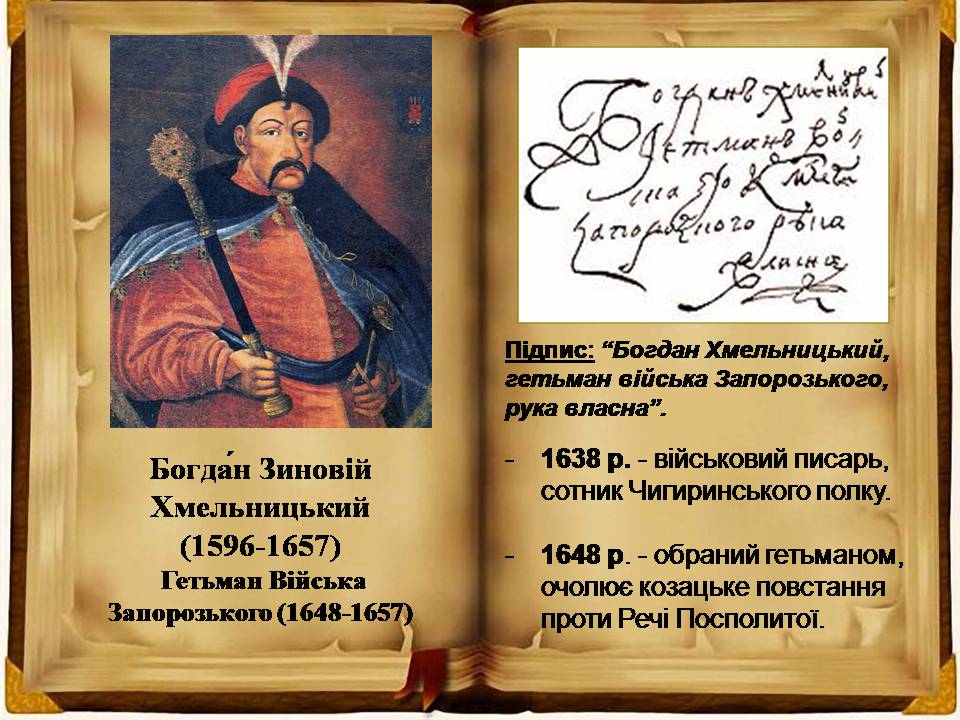 Богда́н Зиновій
Хмельницький
(1596-1657)
Гетьман Війська
Запорозького (1648-1657)
Богданъ Хмелниц
Гетманъ
Запорозкого рука
власна
Підпис: “Богдан Хмельницький,
гетьман війська Запорозького,
рука власна”.
- 1638 р. - військовий писарь,
сотник Чигиринського полку.
- 1648 р. - обраний гетьманом,
очолює козацьке повстання
проти Речі Посполитої.